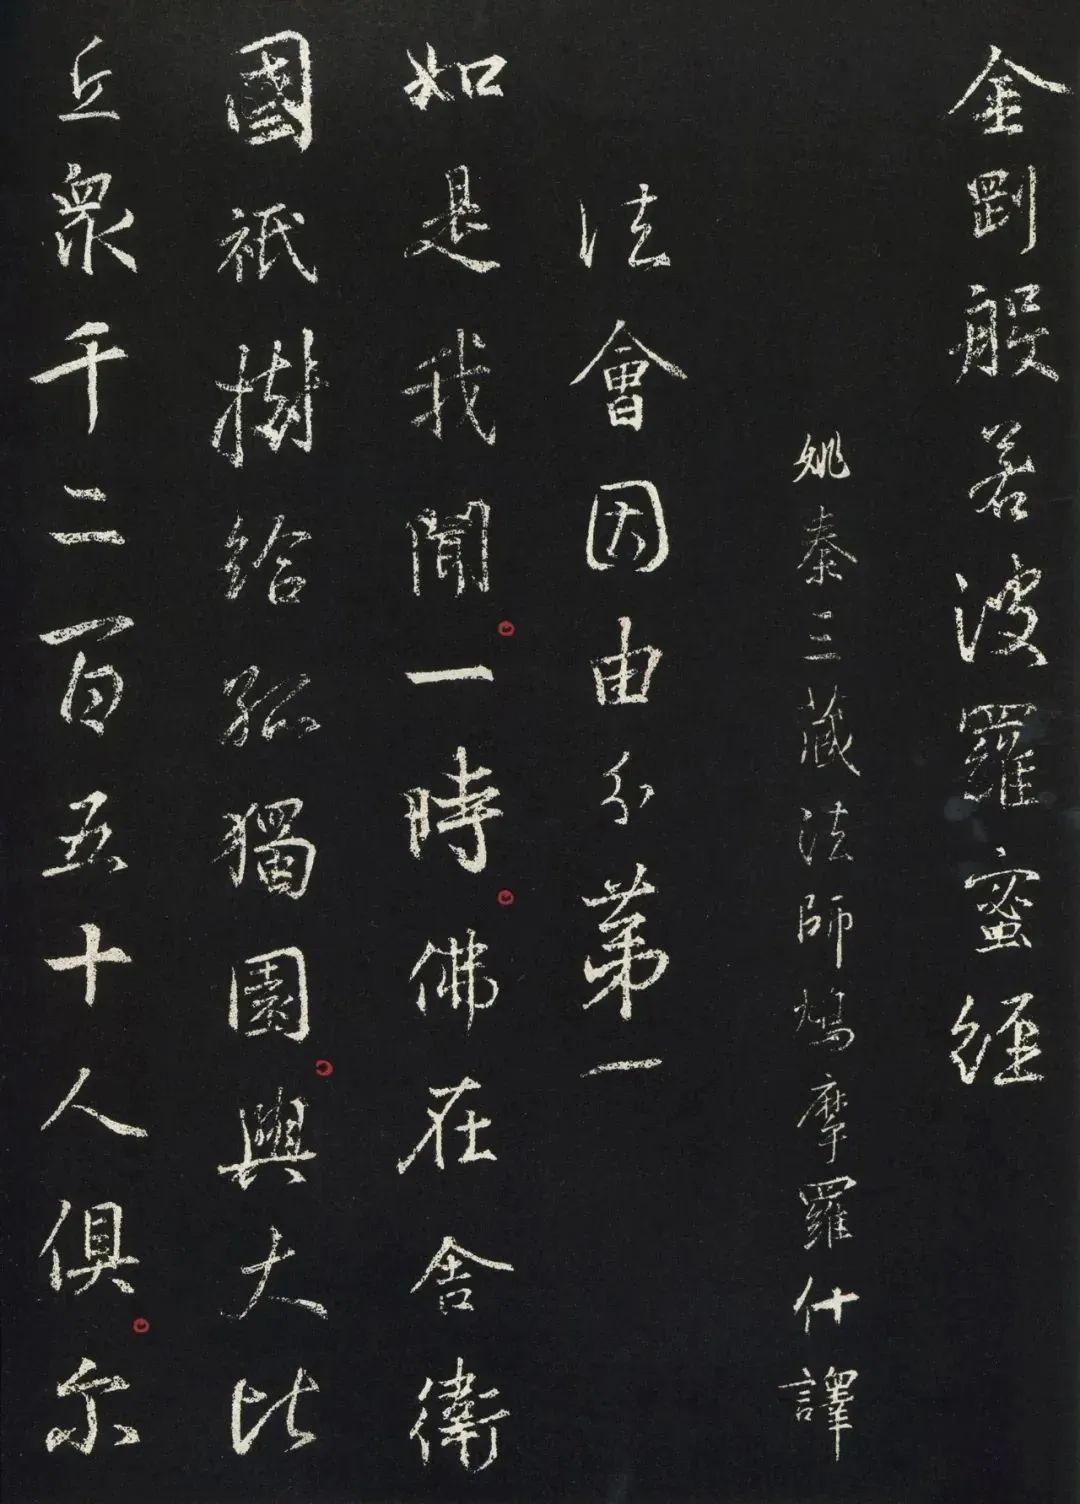 金剛般若波羅蜜經
姚秦三藏法師鳩摩羅什譯
法會因由分第一
如是我聞一時佛在舍衛
國祇樹給孤獨園與大比
丘眾千二百五十人俱尔